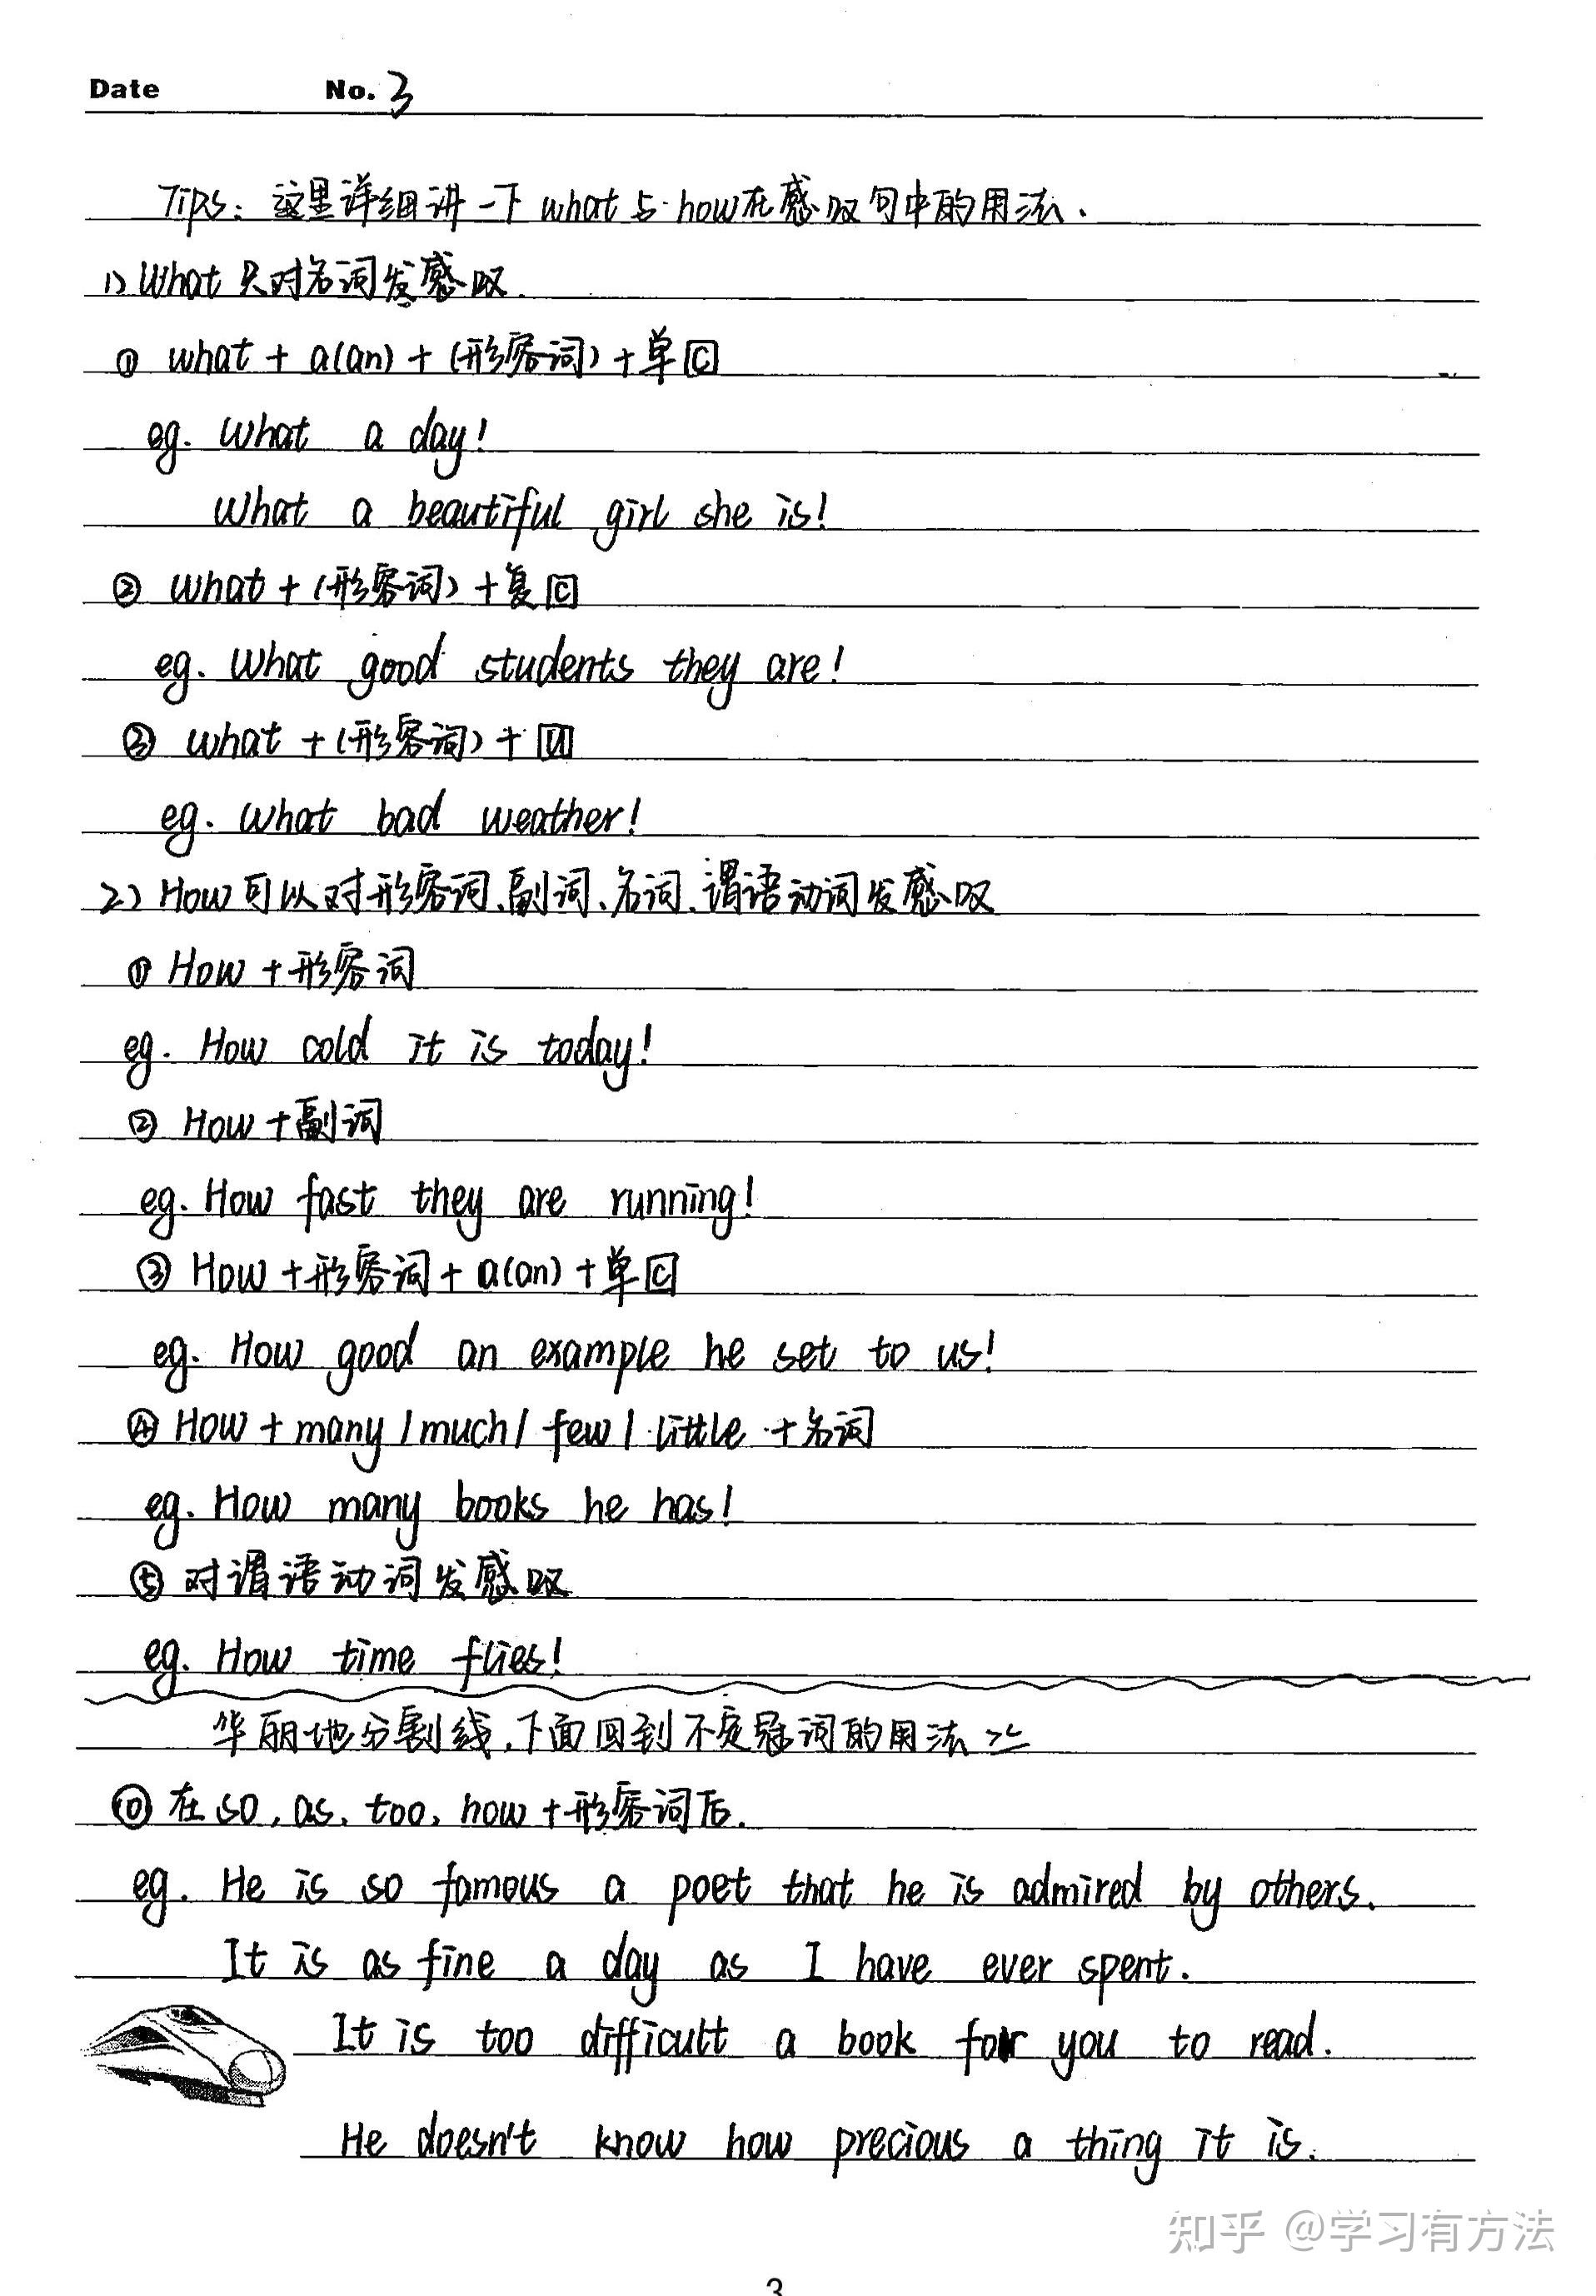 Date No. 3
Tips: 这里详细讲一下 what 与 how在感叹句中的用法.
1) What 只对名词发感叹.
① what + a(an) + (形容词) + 单[C]
eg. What a day!
What a beautiful girl she is!
② what + (形容词) + 复[C]
eg. What good students they are!
③ what + (形容词) + [U]
eg. What bad weather!
2) How可以对形容词、副词、名词、谓语动词发感叹
① How + 形容词
eg. How cold it is today!
② How + 副词
eg. How fast they are running!
③ How + 形容词 + a(an) + 单[C]
eg. How good an example he set to us!
④ How + many / much / few / little + 名词
eg. How many books he has!
⑤ 对谓语动词发感叹
eg. How time flies!
华丽地分割线,下面回到不定冠词的用法
⑩ 在 so, as, too, how + 形容词后.
eg. He is so famous a poet that he is admired by others.
It is as fine a day as I have ever spent.
It is too difficult a book for you to read.
He doesn't know how precious a thing it is.
知乎 @学习有方法
3